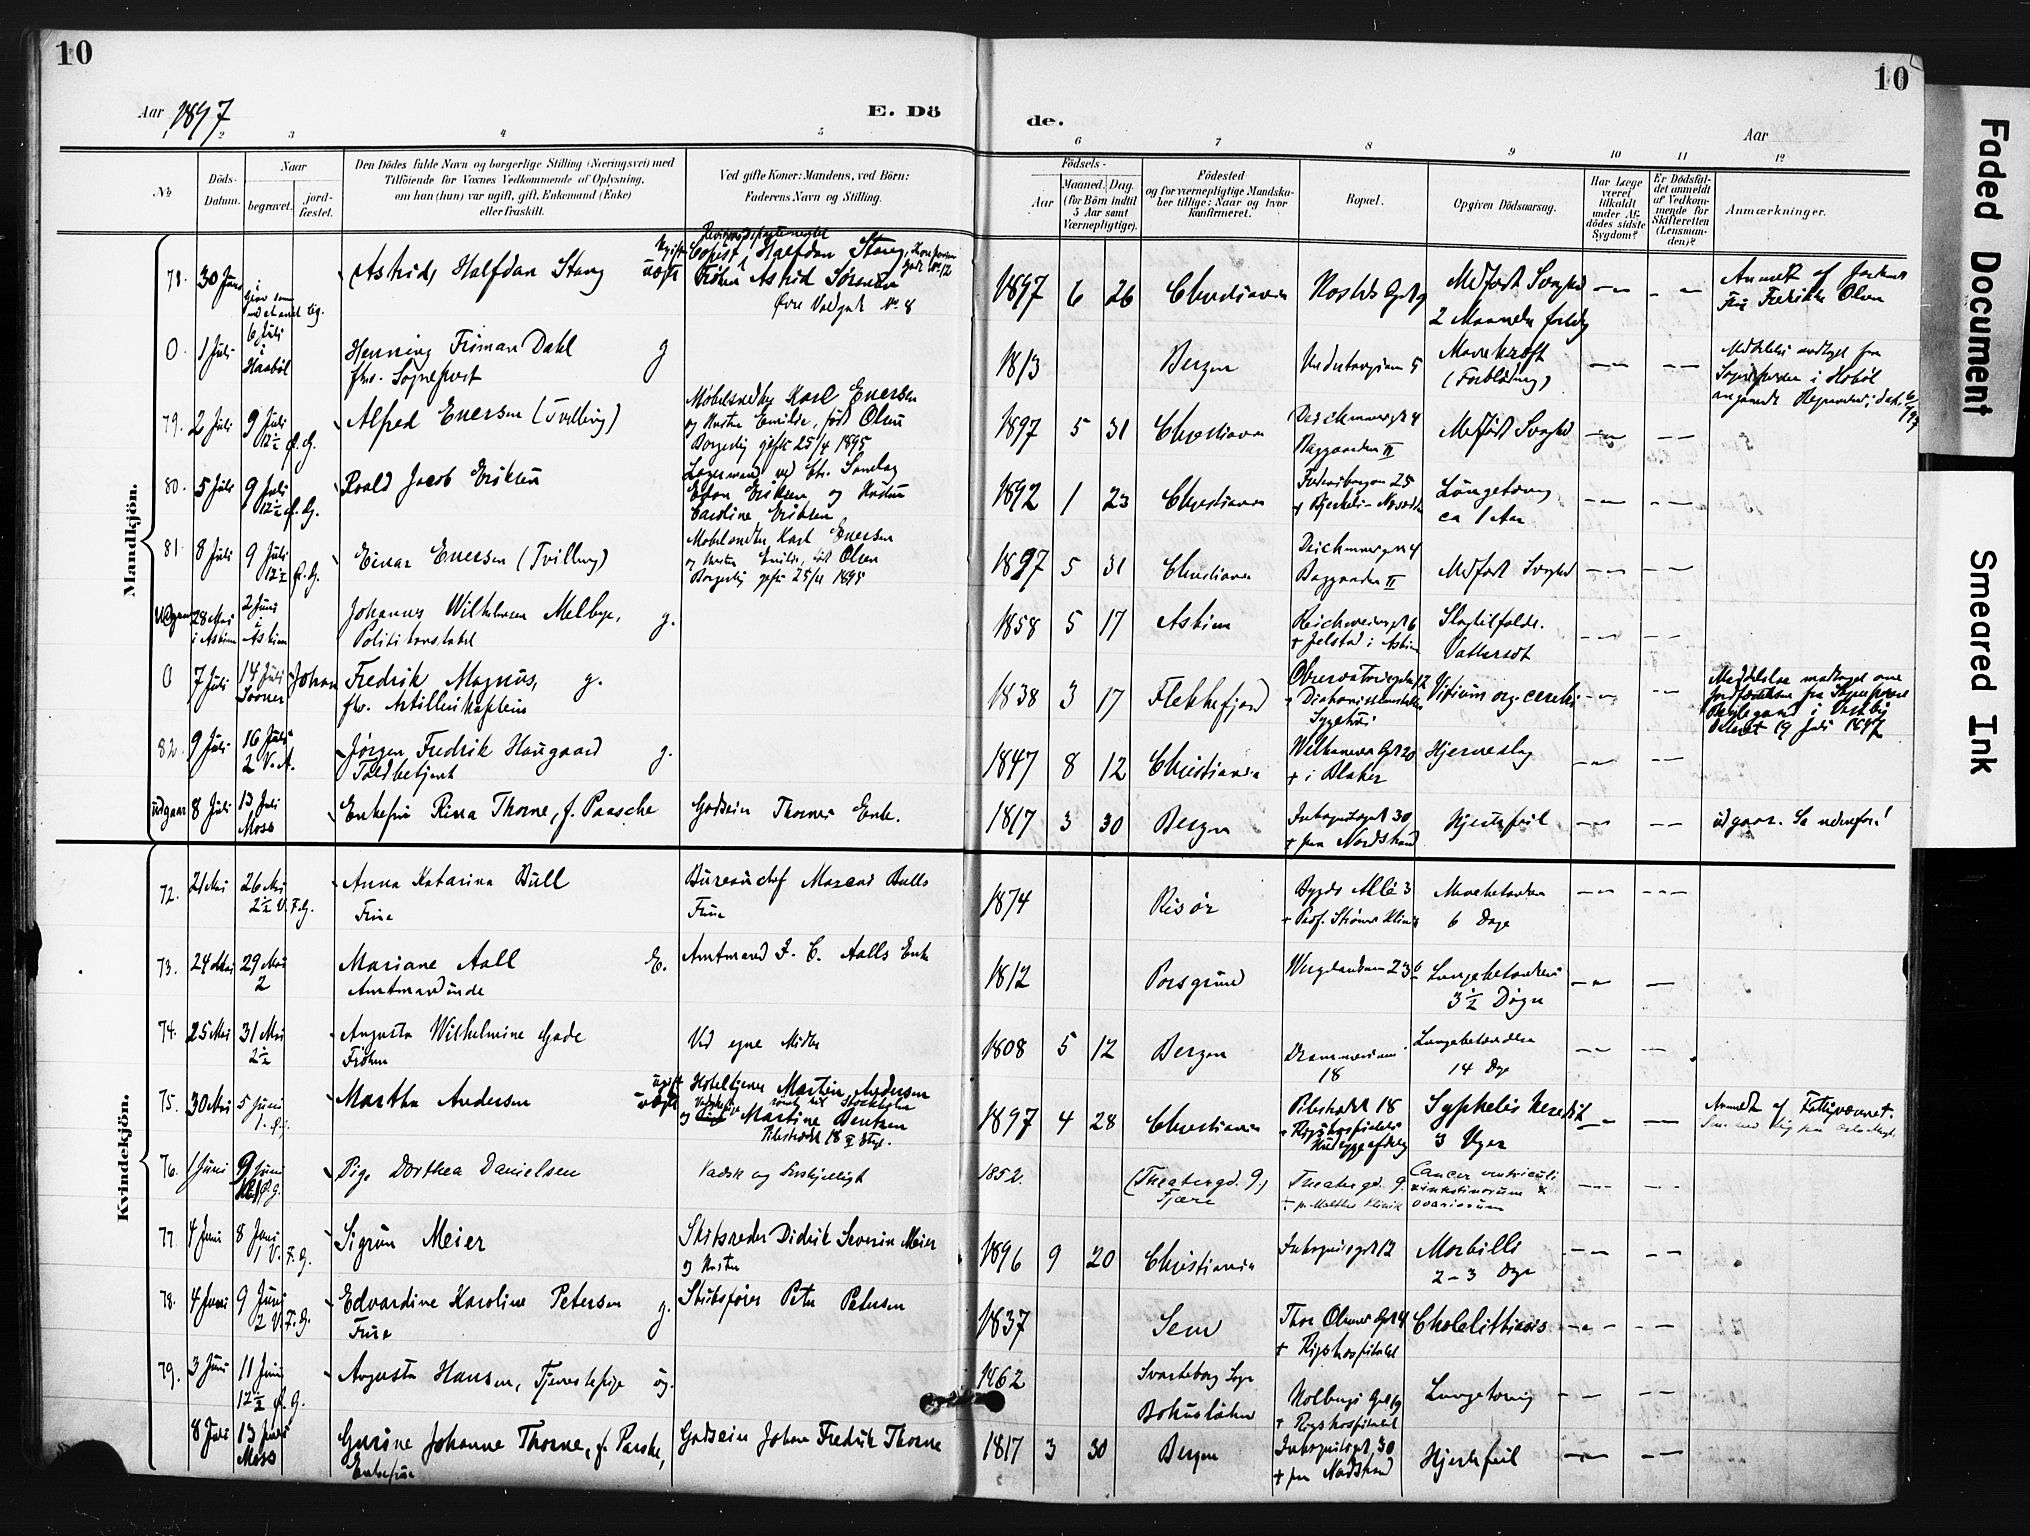 10
10
Aar 1897
E. Döde.
Aar
1 2 3 4 5 6 7 8 9 10 11 12
No
Döds-Datum.
Naar
begravet.
jord-fæstet.
Den Dödes fulde Navn og borgerlige Stilling (Næringsvei) med
Tilföiende for Voxnes Vedkommende af Oplysning,
om han (hun) var ugift, gift, Enkemand (Enke)
eller fraskilt.
Ved gifte Koner: Mandens, ved Börn:
Faderens Navn og Stilling.
Födsels-
Aar
Maaned. Dag.
(for Börn indtil
5 Aar samt
Værnepligtige).
Födested
og for værnepligtige Mandska-
ber tillige: Naar og hvor
Konfirmeret.
Bopæl.
Opgiven Dödsaarsag.
Har Læge
været
tilkaldt
under Af-
dödes sidste
Sygdom?
Er Dödsfal-
det anmeldt
af Vedkom-
mende for
Skifteretten
(Lensman-
den)?
Anmærkninger.
Mandkjön.
78. 30 Juni Astrid Halfdan Stang uægt Copist Halfdan Stang,
Frøken Astrid Sörensen
Øvre Voldgade No 8
1897 6 26 Christiania Medfødt Svaghed
2 Maaneder
Anmeldt af
Fru Fredrikke Olsen
0 1 Juli 6 Juli i Haabøl Henning Firman Dahl g
fhv. Sogneprest
1813 Bergen 5 Marekræft
(Forblødning)
79. 2 Juli 9 Juli 12½ f.G. Alfred Enersen (Tvilling) Møbelsnedker Karl Enersen
og Hustru Emilie, født Olsen
Borgerlig gift 25/4 1895
1897 5 31 Christiania Deichmansgd 4
Baggaarden II
Medfødt Svaghed
80. 5 Juli 9 Juli 12½ f.G. Roald Jacob Eriksen
Eriksen og Hustru
Caroline Eriksen
1892 1 23 Christiania Lungetæring
ca 1 Aar
81. 8 Juli 9 Juli 12½ f.G. Einar Enersen (Tvilling) Møbelsnedker Karl Enersen
og Hustru Emilie, født Olsen
Borgerlig gift 25/4 1895
1897 5 31 Christiania Deichmansgd 4
Baggaarden II
Medfødt Svaghed
28 Mai i Askim 2 Juni i Askim Johannes Wilhelmsen Melbye, g.
Politikonstabel
1858 5 17 Askim
+ Jelstad i Askim
Slagtilfælde.
Vattersot
0 7 Juli 14 Juli Fredrik Magnus, g.
fhv. Artillerikaptein
1838 3 17 Flekkefjord Observatoriegaden 12
+ Diakonissehusets
Sygehus
Vitium org. cerebri
Meddelelse modtaget om
Jordfæstelsen fra Sogneprest
Datert 19 Juli 1897
82. 9 Juli 16 Juli 2 V.A. Jørgen Fredrik Haugaard g.
Toldbetjent
1847 8 12 Christiania
+ i Blaker
Hjerneslag
udgaar 8 Juli 13 Juli Moss Enkefru Rina Thorne, f. Paasche Godseier Thornes Enke.
1817 3 30 Bergen Inkognitogd 30
+ paa Nordstrand
Hjertefeil
udgaar. Se nedenfor!
Kvindekjön.
72. 21 Mai 26 Mai 2½ V.F.G. Anna Katarina Bull
Frue
Bureauchef Bulls
Frue
1874 Risør Bygdø Allé 3
+ Prof. Strøms Klinik
6 Dage
73. 24 Mai 29 Mai 2 Mariane Aall E.
Amtmandinde
Amtmand I. C. Aalls Enke
1812 Porsgrund Lungebetændelse
3½ Døgn
74. 25 Mai 31 Mai 2½ Augusta Wilhelmine Gade
Frøken
Ved egne Midler
1808 5 12 Bergen Drammensveien
18
Lungebetændelse
14 Dage
75. 30 Mai 5 Juni Martha Andersen ugift uægte Hoteltjener Martin Andersen
rømt til Stockholm
og Martine Bentzen
Pilestrædet 18
1897 4 28 Christiania Pilestrædet 18
+ Rigshospitalets
Hudsygeafdeling
Syphilis heredit
3 Uger
Anmeldt af Fattigvæsenet.
76. 1 Juni 9 Juni Pige Dorthea Danielsen Vadsk og Forskjelligt
1852. (Theatergd. 9,)
Fjære
Theatergd. 9.
+ p. Malthes Klinik
Cancer ventriculi
intestinorum &
ovariorum
77. 4 Juni 8 Juni 1 V. F.G. Sigrun Meier Skibsreder Didrik Severin Meier
og Hustru
1896 9 20 Christiania Inkognitogd 12 Morbilli
2-3 Dage
78. 4 Juni 9 Juni 2 V.F.G. Edvardine Karoline Petersen g.
Frue
Skibsfører Peter Petersen
1837 Sem Thor Olsens Gd 4
+ Rigshospitalet
Cholelithiasis
79. 3 Juni 11 Juni 12½ f.G. Augusta Hansen, Tjenestepige ug.
1862 Svarteborg Sogn
Bohuslehn
Holbergs Gd 19
+ Rigshospitalet
Lungetæring
8 Juli 13 Juli Moss Gurine Johanne Thorne, f. Paasche,
Enkefrue
Godseier Johan Fredrik Thorne
1817 3 30 Bergen Inkognitogd. 30
+ paa Nordstrand
Hjertefeil
Faded Document
Smeared Ink